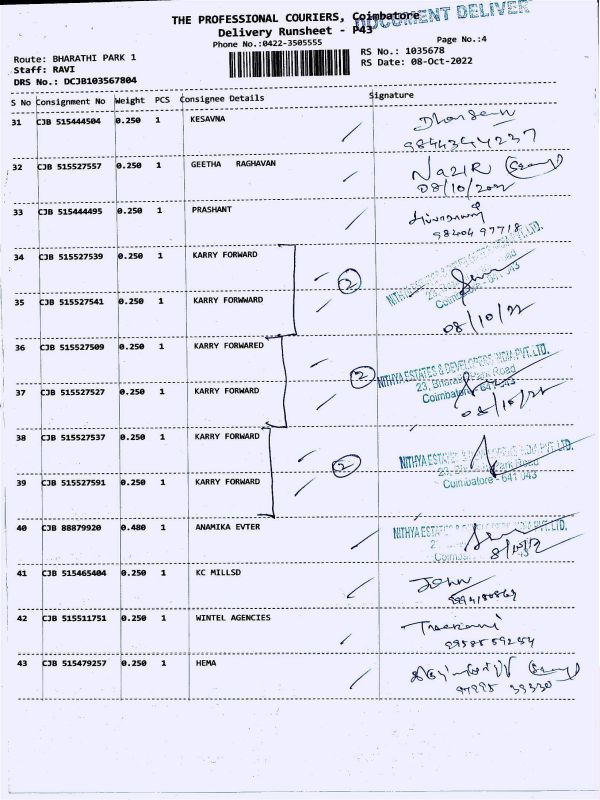 THE PROFESSIONAL COURIERS, Coimbatore
DOCUMENT DELIVER
Delivery Runsheet - P43
Phone No.:0422-3505555
Page No.:4
Route: BHARATHI PARK 1
RS No.: 1035678
Staff: RAVI
RS Date: 08-Oct-2022
DRS No.: DCJB103567804
S No Consignment No Weight PCS Consignee Details Signature
31 CJB 515444504 0.250 1 KESAVNA
9844344237
32 CJB 515527557 0.250 1 GEETHA RAGHAVAN NAZIR
08/10/2022
33 CJB 515444495 0.250 1 PRASHANT
98404 97718
34 CJB 515527539 0.250 1 KARRY FORWARD
2 NITHYA ESTATES & DEVELOPERS INDIA PVT. LTD.
Coimbatore - 641 043
35 CJB 515527541 0.250 1 KARRY FORWWARD
08/10/22
36 CJB 515527509 0.250 1 KARRY FORWARED
2 NITHYA ESTATES & DEVELOPERS INDIA PVT. LTD.
23, Bharathi Park Road
37 CJB 515527527 0.250 1 KARRY FORWARD Coimbatore - 641 043
08/10/22
38 CJB 515527537 0.250 1 KARRY FORWARD
2 NITHYA ESTATES & DEVELOPERS INDIA PVT. LTD.
23, Bharathi Park Road
39 CJB 515527591 0.250 1 KARRY FORWARD Coimbatore - 641 043
40 CJB 88879920 0.480 1 ANAMIKA EVTER NITHYA ESTATES & DEVELOPERS INDIA PVT. LTD.
41 CJB 515465404 0.250 1 KC MILLSD John
42 CJB 515511751 0.250 1 WINTEL AGENCIES
43 CJB 515479257 0.250 1 HEMA